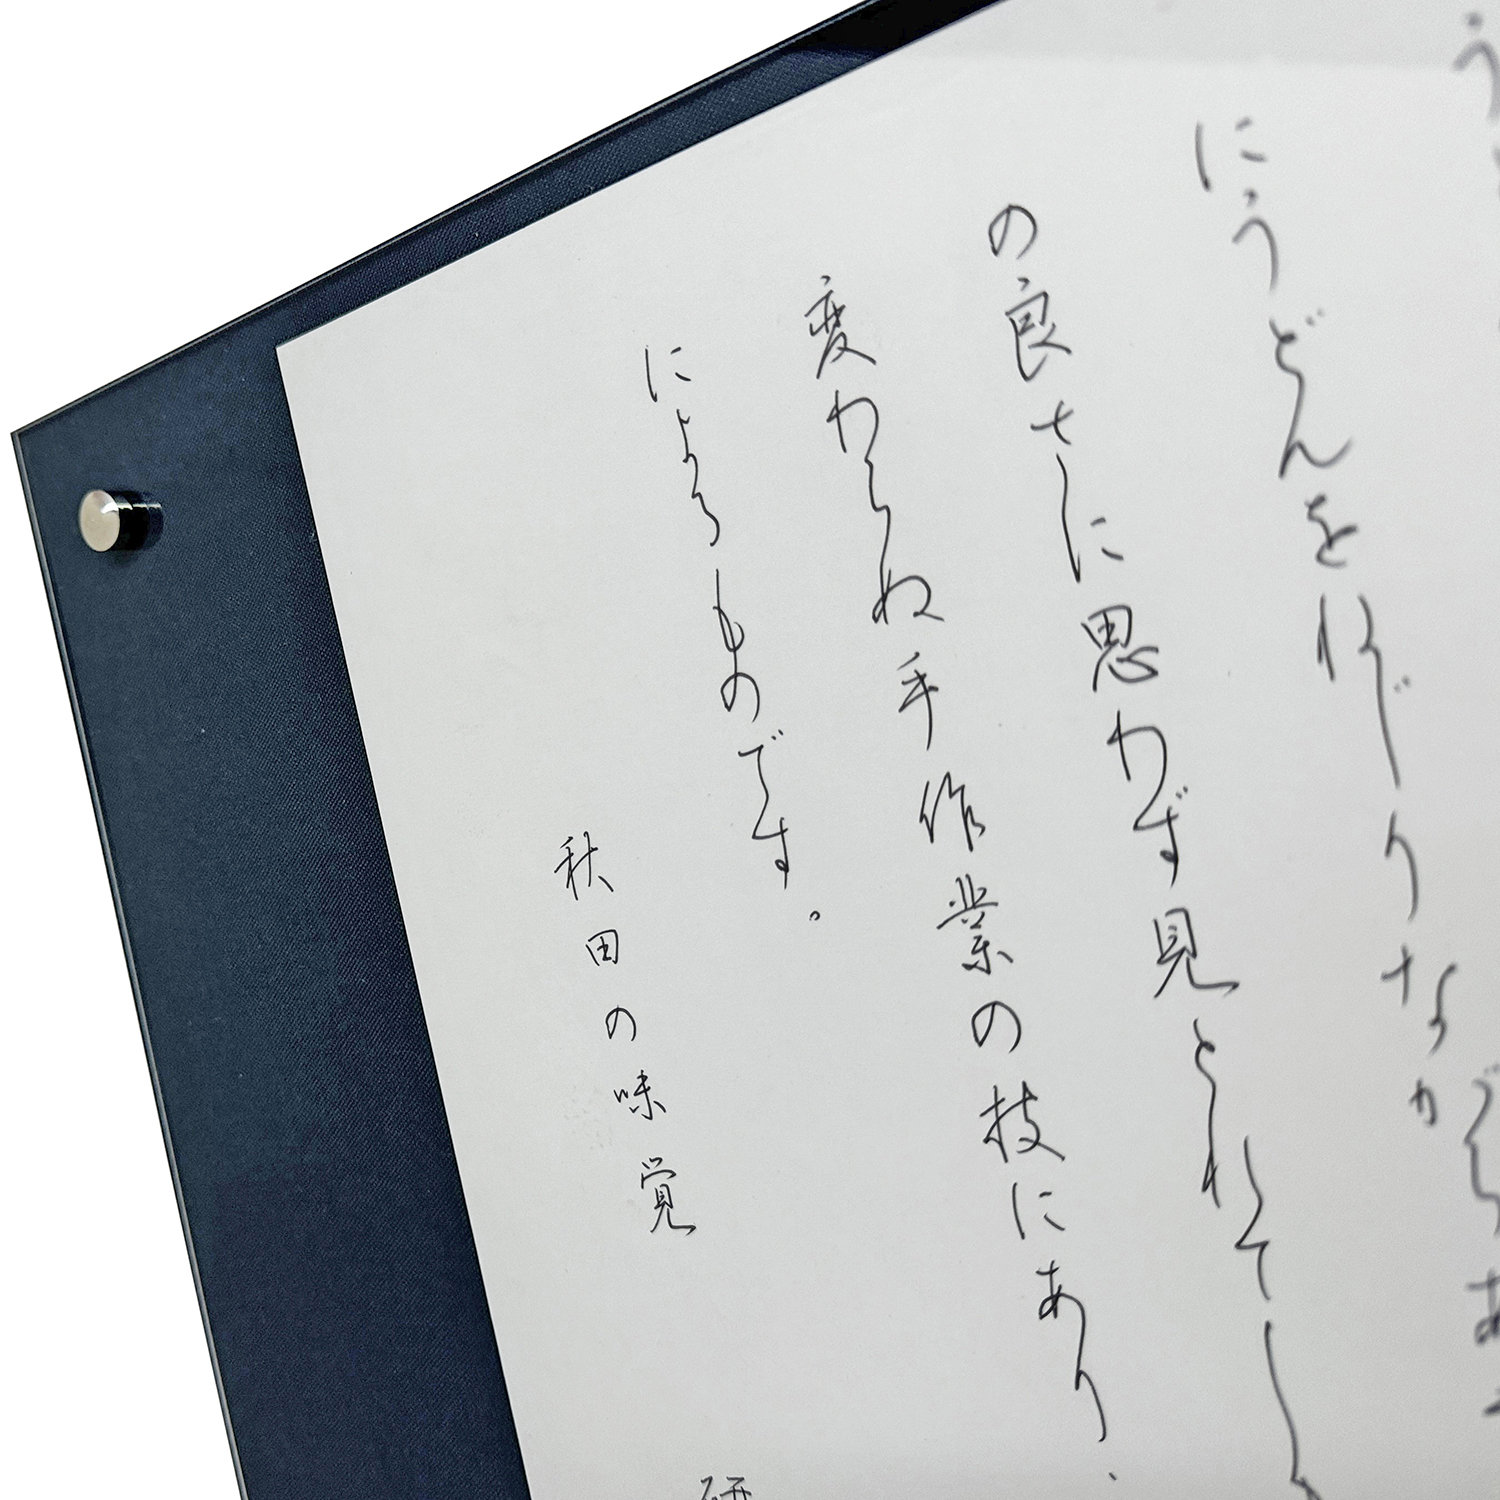 にうどんをねじりながらあ
の良さに思わず見とれてし
変わらぬ手作業の技にあり、
によるものです。
秋田の味覚